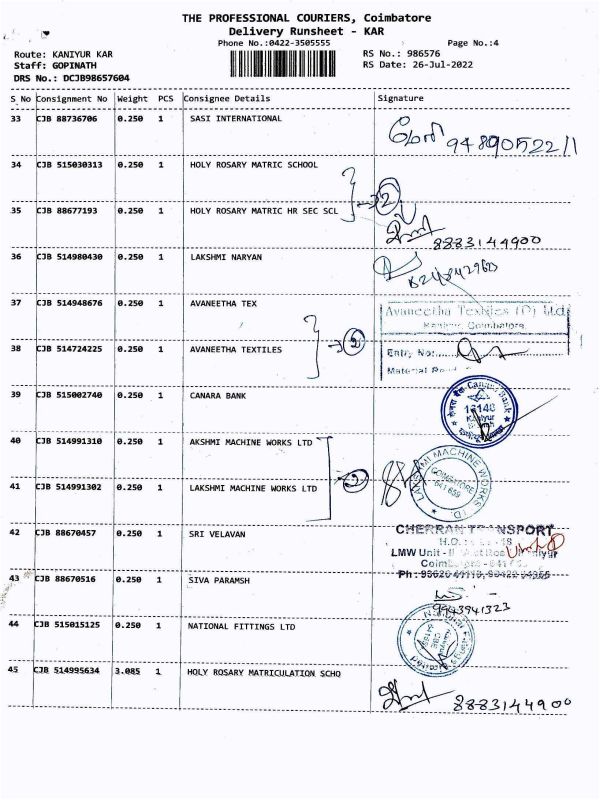 THE PROFESSIONAL COURIERS, Coimbatore
Delivery Runsheet - KAR
Phone No.:0422-3505555
Page No.:4
Route: KANIYUR KAR
RS No.: 986576
Staff: GOPINATH
RS Date: 26-Jul-2022
DRS No.: DCJB98657604
S No Consignment No Weight PCS Consignee Details Signature
33 CJB 88736706 0.250 1 SASI INTERNATIONAL
34 CJB 515030313 0.250 1 HOLY ROSARY MATRIC SCHOOL
2
35 CJB 88677193 0.250 1 HOLY ROSARY MATRIC HR SEC SCL
8883144900
36 CJB 514980430 0.250 1 LAKSHMI NARYAN
37 CJB 514948676 0.250 1 AVANEETHA TEX
Avaneetha Textiles (P) Ltd
Kaniyur, Coimbatore.
2
38 CJB 514724225 0.250 1 AVANEETHA TEXTILES
Entry No:
Material
39 CJB 515002740 0.250 1 CANARA BANK
Canara Bank
Kaniyur
40 CJB 514991310 0.250 1 AKSHMI MACHINE WORKS LTD
LAKSHMI MACHINE WORKS LTD.
COIMBATORE
641 659
41 CJB 514991302 0.250 1 LAKSHMI MACHINE WORKS LTD
42 CJB 88670457 0.250 1 SRI VELAVAN
CHERRAN TRANSPORT
LMW Unit - II
43 CJB 88670516 0.250 1 SIVA PARAMSH
9943941323
44 CJB 515015125 0.250 1 NATIONAL FITTINGS LTD
45 CJB 514995634 3.085 1 HOLY ROSARY MATRICULATION SCHO
8883144900